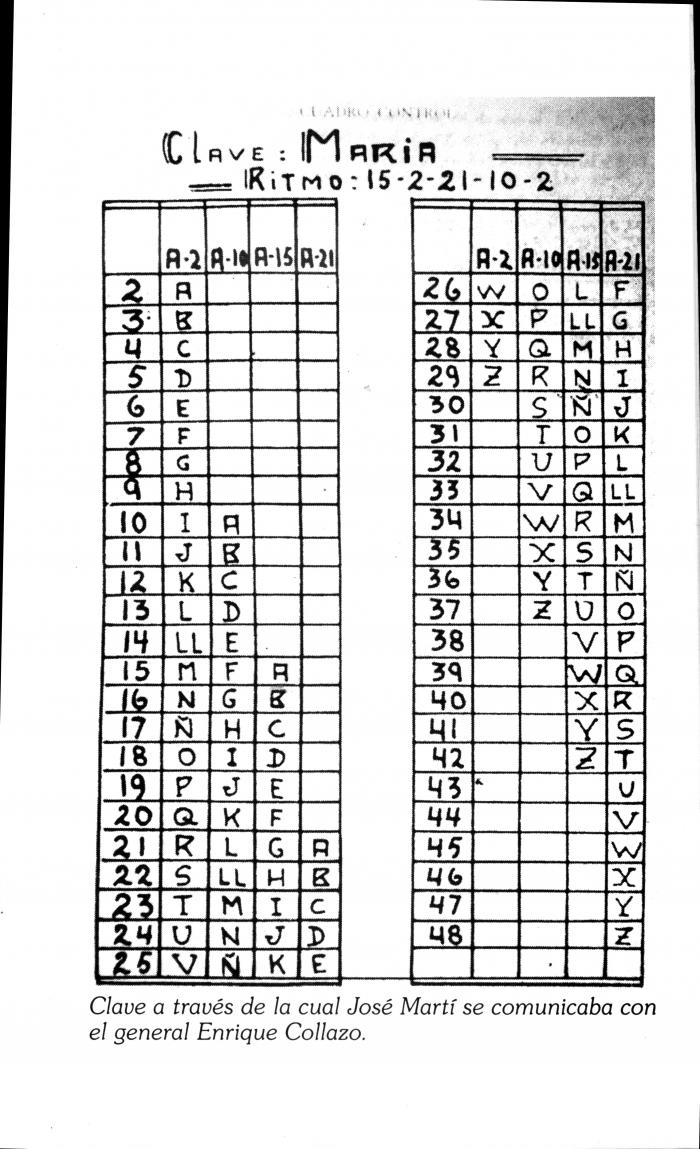 CUADRO CONTROL
CLAVE: MARIA
RITMO: 15-2-21-10-2
A-2 A-10 A-15 A-21
2 A
3 B
4 C
5 D
6 E
7 F
8 G
9 H
10 I A
11 J B
12 K C
13 L D
14 LL E
15 M F A
16 N G B
17 Ñ H C
18 O I D
19 P J E
20 Q K F
21 R L G A
22 S LL H B
23 T M I C
24 U N J D
25 V Ñ K E
A-2 A-10 A-15 A-21
26 W O L F
27 X P LL G
28 Y Q M H
29 Z R N I
30 S Ñ J
31 T O K
32 U P L
33 V Q LL
34 W R M
35 X S N
36 Y T Ñ
37 Z U O
38 V P
39 W Q
40 X R
41 Y S
42 Z T
43 U
44 V
45 W
46 X
47 Y
48 Z
Clave a través de la cual José Martí se comunicaba con
el general Enrique Collazo.